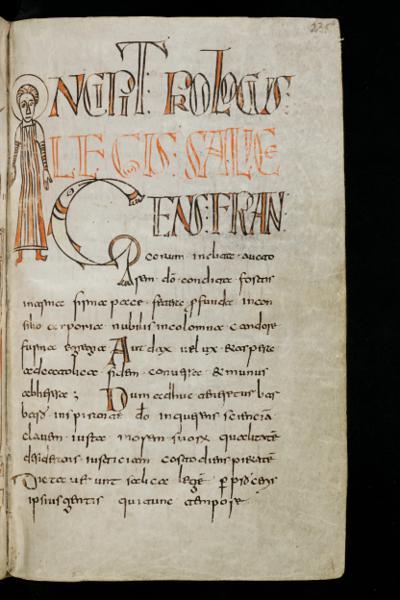 235
INCIPIT PROLOGUS
LEGIS SALICE
GENS FRAN
corum inclita aucto
rem dō condita fortis
in arma firma pace fetera pfunda in con
silio corporia nubilis incolomna candore
furma egregia Audax uelox et aspere
ad catholica fidem conuersa et munus
ab heresa ; Dum adhuc teneretur bar
bara inspirante dō inquirens sciencia
clauem iuxta morem suorx qualitatē
desiderans iusticiam costodiens pietatē
Dictauerunt salica legē p proceris
ipsius gentis qui tunc tempore